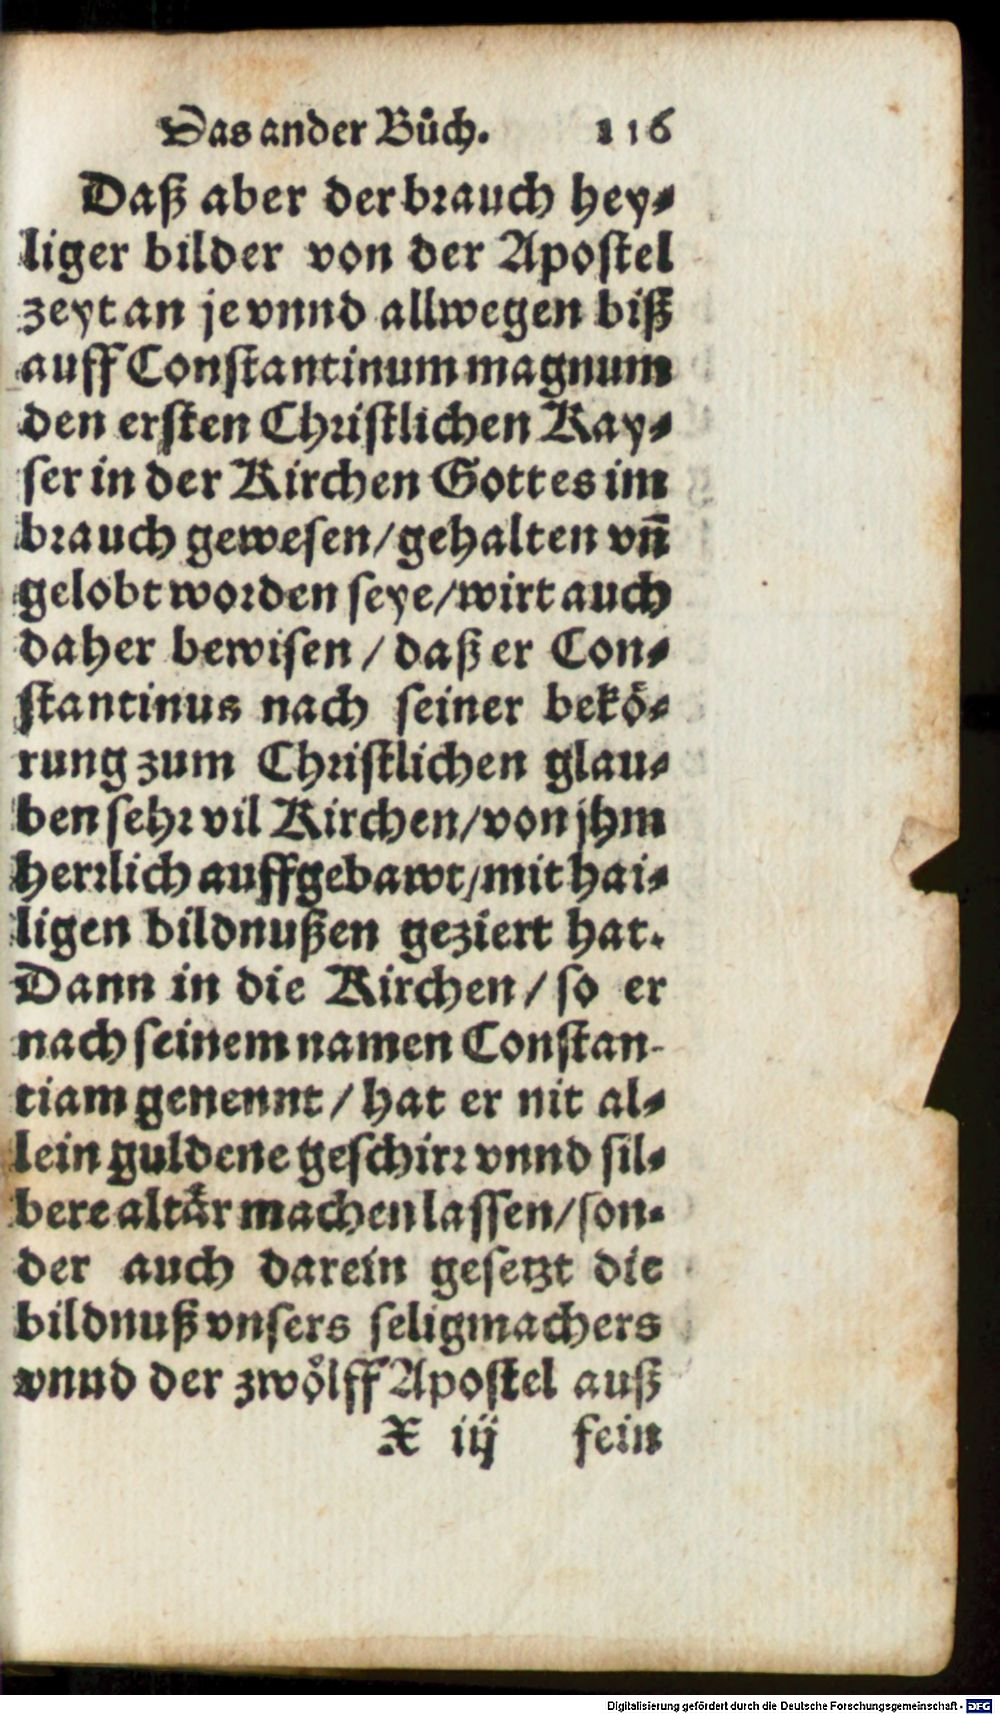 Das ander Bůch. 116
Daß aber der brauch hey⸗
liger bilder von der Apostel
zeyt an je vnnd allwegen biß
auff Constantinum magnum
den ersten Christlichen Kay⸗
ser in der Kirchen Gottes im
brauch gewesen/gehalten vñ
gelobt worden seye/wirt auch
daher bewisen / daß er Con⸗
stantinus nach seiner bekö⸗
rung zum Christlichen glau⸗
ben sehr vil Kirchen/von jhm
herrlich auffgebawt/mit hai⸗
ligen bildnußen geziert hat.
Dann in die Kirchen / so er
nach seinem namen Constan-
tiam genennt / hat er nit al⸗
lein guldene geschirr vnnd sil⸗
bere altär machen lassen/son⸗
der auch darein gesetzt die
bildnuß vnsers seligmachers
vnnd der zwölff Apostel auß
X iij fein
Digitalisierung gefördert durch die Deutsche Forschungsgemeinschaft - DFG